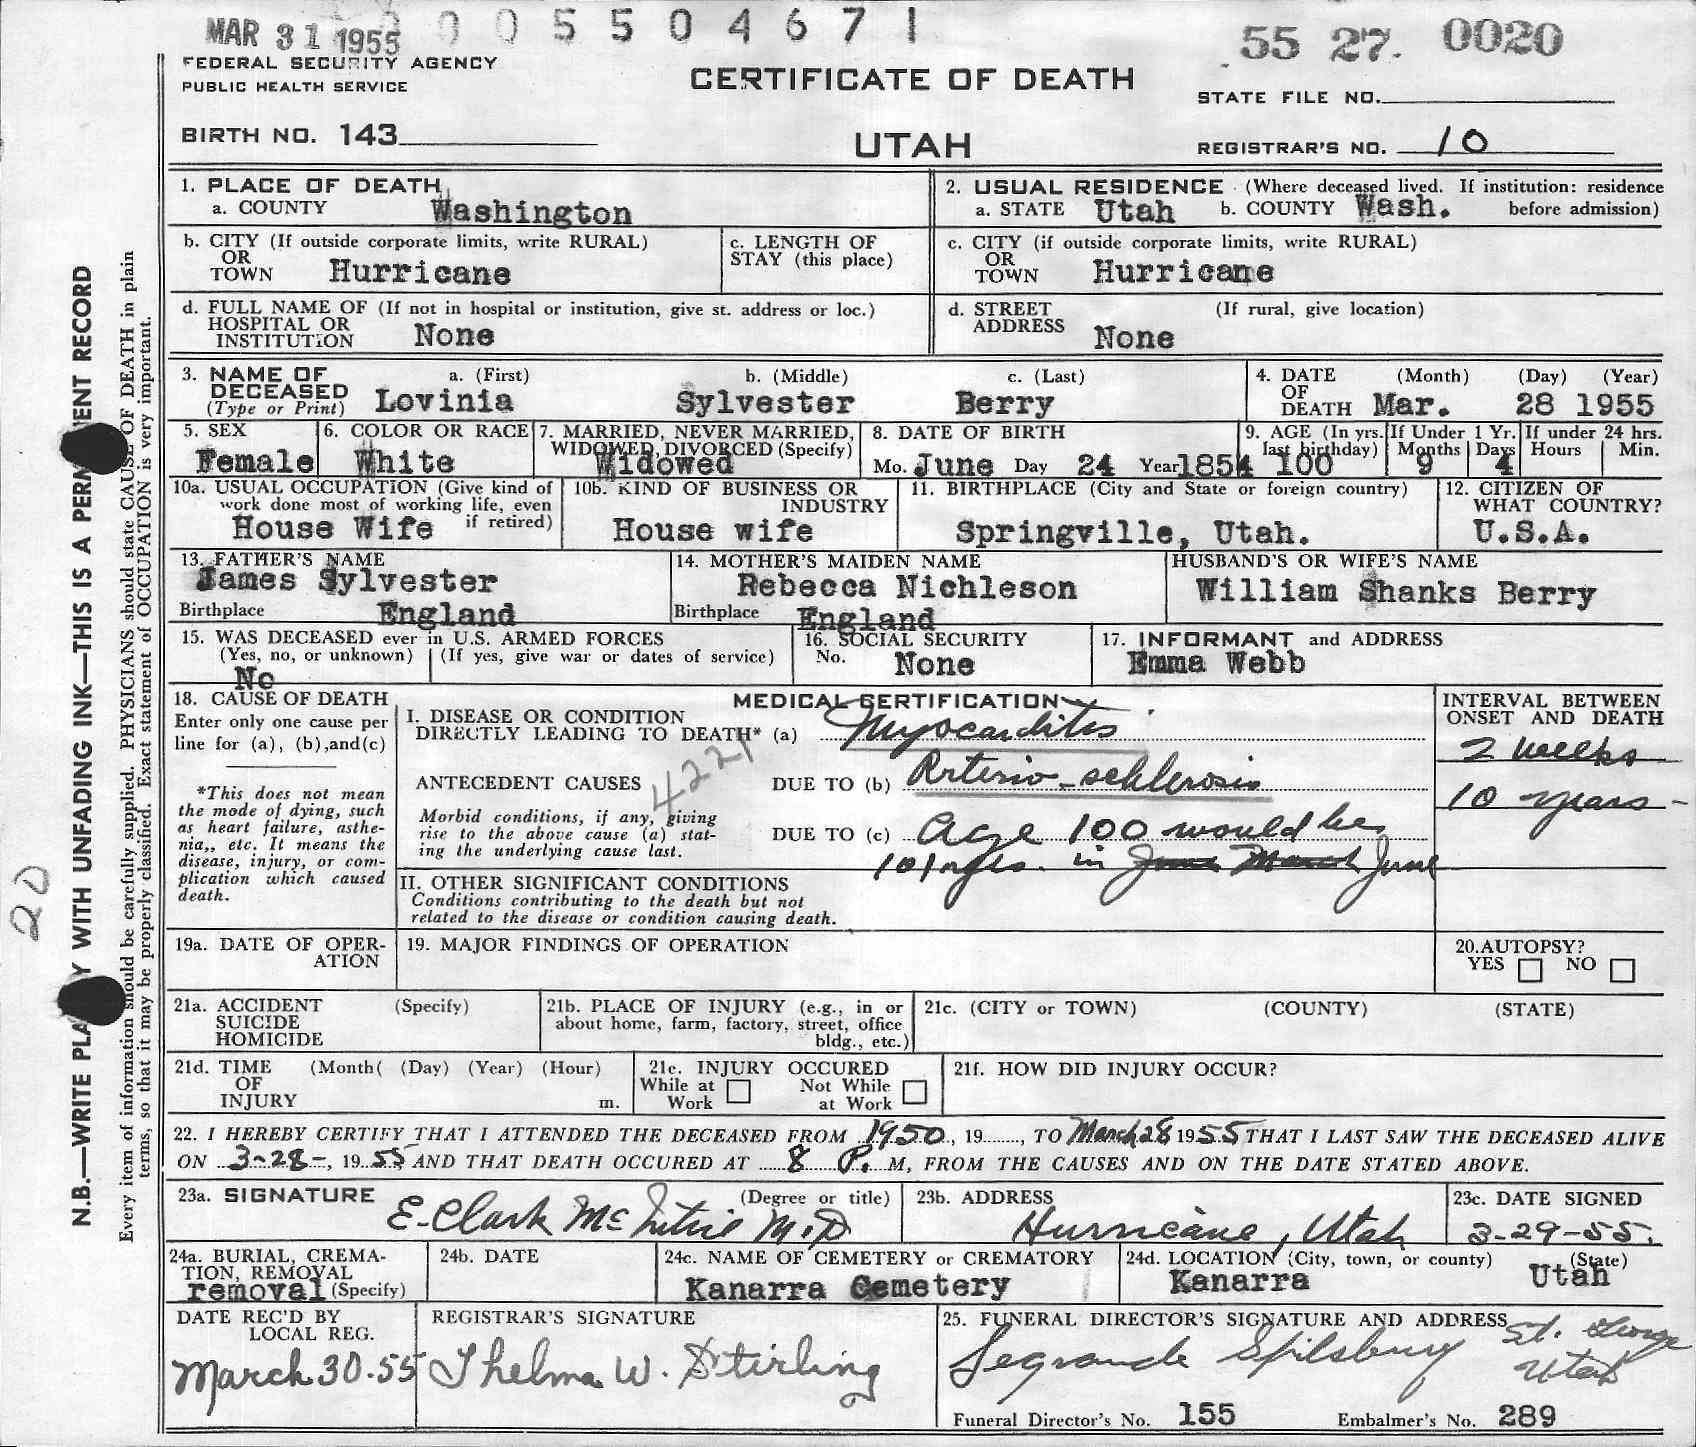 MAR 31 1955 0 0 5 5 0 4 6 7 1 55 27. 0020
FEDERAL SECURITY AGENCY
PUBLIC HEALTH SERVICE
CERTIFICATE OF DEATH
STATE FILE NO.
BIRTH NO. 143
UTAH
REGISTRAR'S NO. 10
1. PLACE OF DEATH
a. COUNTY Washington
2. USUAL RESIDENCE (Where deceased lived. If institution: residence before admission)
a. STATE Utah b. COUNTY Wash.
b. CITY (If outside corporate limits, write RURAL)
OR
TOWN Hurricane
c. LENGTH OF
STAY (this place)
c. CITY (if outside corporate limits, write RURAL)
OR
TOWN Hurricane
d. FULL NAME OF (If not in hospital or institution, give st. address or loc.)
HOSPITAL OR
INSTITUTION None
d. STREET (If rural, give location)
ADDRESS None
3. NAME OF a. (First) b. (Middle) c. (Last)
DECEASED
(Type or Print) Lovinia Sylvester Berry
4. DATE (Month) (Day) (Year)
OF
DEATH Mar. 28 1955
5. SEX
Female
6. COLOR OR RACE
White
7. MARRIED, NEVER MARRIED,
WIDOWED, DIVORCED (Specify)
Widowed
8. DATE OF BIRTH
Mo. June Day 24 Year 1854
9. AGE (In yrs.
last birthday) 100
If Under 1 Yr.
Months 9 Days 4
If under 24 hrs.
Hours Min.
10a. USUAL OCCUPATION (Give kind of
work done most of working life, even
if retired)
House Wife
10b. KIND OF BUSINESS OR
INDUSTRY
House wife
11. BIRTHPLACE (City and State or foreign country)
Springville, Utah.
12. CITIZEN OF
WHAT COUNTRY?
U.S.A.
13. FATHER'S NAME
James Sylvester
Birthplace England
14. MOTHER'S MAIDEN NAME
Rebecca Nichleson
Birthplace England
HUSBAND'S OR WIFE'S NAME
William Shanks Berry
15. WAS DECEASED ever in U.S. ARMED FORCES
(Yes, no, or unknown) (If yes, give war or dates of service)
No
16. SOCIAL SECURITY
No. None
17. INFORMANT and ADDRESS
Emma Webb
18. CAUSE OF DEATH
Enter only one cause per
line for (a), (b), and (c)
*This does not mean
the mode of dying, such
as heart failure, asthe-
nia,, etc. It means the
disease, injury, or com-
plication which caused
death.
MEDICAL CERTIFICATION
I. DISEASE OR CONDITION
DIRECTLY LEADING TO DEATH* (a) Myocarditis
4221
ANTECEDENT CAUSES DUE TO (b) Arterio-schlerosis
Morbid conditions, if any, giving
rise to the above cause (a) stat-
ing the underlying cause last.
DUE TO (c) Age 100 would be
101 yrs. in June March June
INTERVAL BETWEEN
ONSET AND DEATH
2 weeks
10 years -
II. OTHER SIGNIFICANT CONDITIONS
Conditions contributing to the death but not
related to the disease or condition causing death.
19a. DATE OF OPER-
ATION
19. MAJOR FINDINGS OF OPERATION
20. AUTOPSY?
YES NO
21a. ACCIDENT (Specify)
SUICIDE
HOMICIDE
21b. PLACE OF INJURY (e.g., in or
about home, farm, factory, street, office
bldg., etc.)
21c. (CITY or TOWN) (COUNTY) (STATE)
21d. TIME (Month( (Day) (Year) (Hour)
OF
INJURY m.
21e. INJURY OCCURED
While at Work Not While at Work
21f. HOW DID INJURY OCCUR?
22. I HEREBY CERTIFY THAT I ATTENDED THE DECEASED FROM 1950, 19......, TO March 28 1955 THAT I LAST SAW THE DECEASED ALIVE
ON 3-28-, 1955 AND THAT DEATH OCCURED AT 8 P. M, FROM THE CAUSES AND ON THE DATE STATED ABOVE.
23a. SIGNATURE (Degree or title)
E. Clark McIntire M.D
23b. ADDRESS
Hurricane, Utah
23c. DATE SIGNED
3-29-55.
24a. BURIAL, CREMA-
TION, REMOVAL
removal (Specify)
24b. DATE
24c. NAME OF CEMETERY or CREMATORY
Kanarra Cemetery
24d. LOCATION (City, town, or county) (State)
Kanarra Utah
DATE REC'D BY
LOCAL REG.
March 30-55
REGISTRAR'S SIGNATURE
Thelma W. Stirling
25. FUNERAL DIRECTOR'S SIGNATURE AND ADDRESS
Legrande Spilsbury St. George
Utah
Funeral Director's No. 155 Embalmer's No. 289
N.B.—WRITE PLA Y WITH UNFADING INK—THIS IS A PERM ENT RECORD
Every item of information should be carefully supplied. PHYSICIANS should state CAUSE OF DEATH in plain
terms, so that it may be properly classified. Exact statement of OCCUPATION is very important.
20